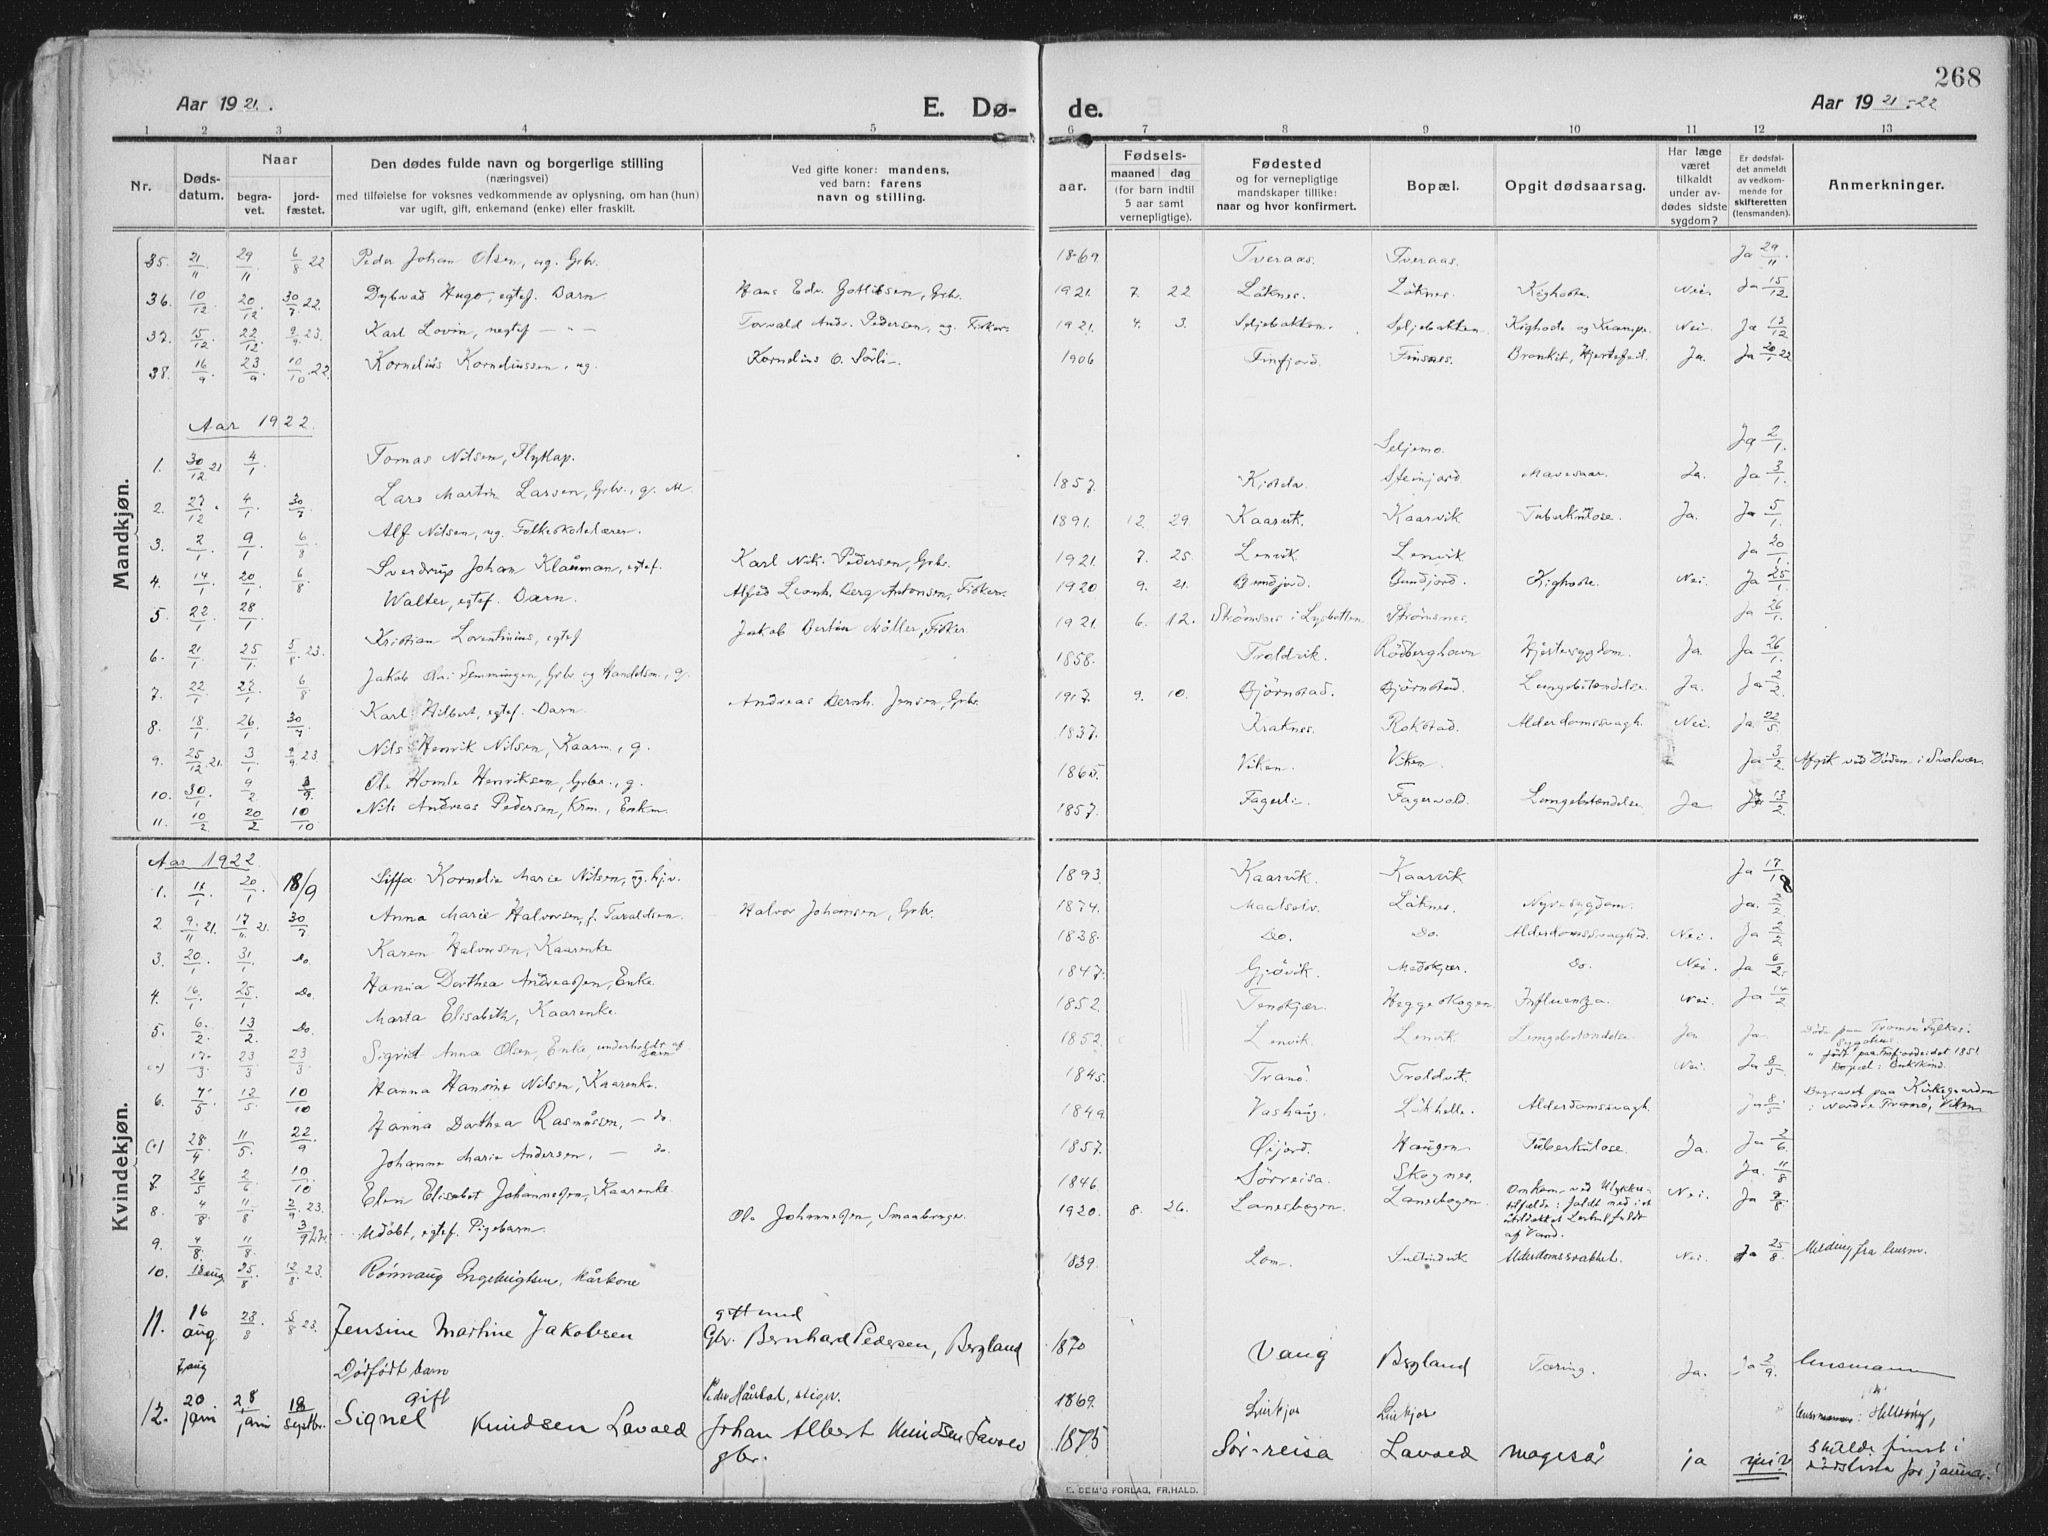 268
Aar 1921. E. Dø- de. Aar 1921-22
1 2 3 4 5 6 7 8 9 10 11 12 13
Nr. Døds-datum. Naar begra-vet. jord-fæstet. Den dødes fulde navn og borgerlige stilling (næringsvei) med tilføielse for voksnes vedkommende av oplysning, om han (hun) var ugift, gift, enkemand (enke) eller fraskilt. Ved gifte koner: mandens, ved barn: farens navn og stilling. aar. Fødsels- maaned dag (for barn indtil 5 aar samt vernepligtige). Fødested og for vernepligtige mandskaper tillike: naar og hvor konfirmert. Bopæl. Opgit dødsaarsag. Har læge været tilkaldt under av-dødes sidste sygdom? Er dødsfal-det anmeldt av vedkom-mende for skifteretten (lensmanden). Anmerkninger.
Mandkjøn.
35. 21/11 29/11 6/8 22 Peder Johan Olsen, ug. Grbr. 1869. Tveraas. Tveraas. Ja 29/11
36. 10/12 20/12 30/7 22. Dybvad Hugo, egtef. Barn. Hans Edv. Gotlibsen, Grbr. 1921. 7. 22 Løknes. Løknes. Kighoste. Nei. Ja 15/12
37. 15/12 22/12 2/9 23. Karl Lovin, uegtef — " — Torvald Andr. Pedersen, ug. Fisker. 1921. 4. 3. Seljebakken. Seljebakken. Kighoste og Krampe. Nei. Ja 15/12
38. 16/9 23/9 10/10 22. Kornelius Korneliussen, ug. Kornelius O. Sørli. 1906 Finfjord. Finsnes. Bronkit, Hjertefeil. Ja. Ja 20/1 22
Aar 1922.
1. 30/12 21 4/1 Tomas Nilsen, Flytlap. Seljemo. Ja 2/1.
2. 27/12 4/1 30/7 Lars Martin Larsen, Grbr., g. M. 1857. Steinjord Mavesaar. Ja. Ja 3/1.
3. 2/1 9/1 6/8 Alf Nilsen, ug. Folkeskolelærer. 1891. 12. 29. Kaarvik. Kaarvik Tuberkulose. Ja. Ja 5/1.
4. 14/1 20/1 6/8 Sverdrup Johan Klauman, egtef. Karl Nik. Pedersen, Grbr. 1921. 7. 25. Lenvik Lenvik Ja 20/1
5. 22/1 28/1 Walter, egtef. Barn. Alfred Leonh. Berg Antonsen, Fisker. 1920 9. 21. Gundjord. Gundjord. Kighoste. Nei. Ja 25/1
6. 21/1 25/1 5/8 23. Kristian Loventinius, egtef Jakob Bertin Møller, Fisker. 1921 6. 12. Strømsnes i Lysbotten Strømsnes. Ja 26/1.
7. 22/1 27/1 6/8 Jakob Olai Hemmingsen, Grbr og Handelsm., g. 1858. Troldvik. Rødberghavn Hjertesygdom. Ja. Ja 26/1.
8. 18/1 26/1 30/7 Karl Hilbert, egtef. Barn. Andreas Bernh. Jensen, Grbr. 1917. 9. 10. Bjørnstad. Bjørnstad. Lungebetændelse. Ja. Ja 2/2
9. 25/12 21. 3/1 2/9 23. Nils Henrik Nilsen, Kaarm., g. 1837. Kraknes. Rokstad. Alderdomssvagh. Nei. Ja 22/5.
10. 30/1 9/2 Ole Homle Henriksen, Grbr., g. 1865. Viken. Viken. Ja 3/2. Afgik ved Døden i Svolvær.
11. 10/2 20/2 10/10 Nils Andreas Pedersen, Krm., Enkm. 1857. Fagerli. Fagervold. Lungebetændelse Ja 13/2.
Kvindekjøn.
Aar 1922.
1. 11/1 20/1 18/9 Siffa Kornelie Marie Nilsen, ug. hj.v. 1893. Kaarvik. Kaarvik Ja 17/1
2. 9/11 21. 17/11 21. 30/7 Anna Marie Halvorsen, f. Taraldsen. Halvor Johansen, Grbr. 1874. Maalselv. Løknes. Nyresygdom. Ja. 2/2
3. 20/1 31/1 Do. Karen Halvorsen, Kaarenke 1838. Do. Do. Alderdomssvaghed. Nei. Ja 2/2
4. 16/1 25/1 Do. Hanna Dorthea Andreassen, Enke. 1847. Gjøvik. Do. Nei. Ja 6/2.
5. 6/2 13/2 Do. Marta Elisabeth, Kaarenke. 1852. Tenskjær. Heggeskogen. Influenza. Nei. Ja 14/2
(-) 17/3 23/3 23/3 Sigrid Anna Olsen, Enke, underholdt af Barn 1852. Lenvik. Lenvik. Lungebetændelse. Ja Ja. Døde paa Tromsø Fylkes. Sygehus.
6. 7/5 12/5 10/10 Hanna Hansine Nilsen, Kaarenke. 1845. Tranø. Troldvik. Nei. Ja 8/5.
(-) 28/4 11/5. 22/9 Hanna Dorthea Rasmussen, — do 1849. Vashaug. Løkhelle. Alderdomssvagh. Ja 8/5. Begravet paa Kirkegaarden i Nordre Tranø, Viken
7. 26/5 2/6 10/10 Johanne Marie Andersen, — do. 1857. Øijord. Haugen Tuberkulose. Ja. Ja 2/6.
8. 4/8 11/8 2/9 23. Elen Elisabet Johannessen, Kaarenke. 1846. Sørreisa. Skognes. Ja. 11/8
9. 4/8. 11/8. Udøbt, egtef. Pigebarn. Ole Johannessen, Smaabruger. 1920. 8. 26. Lanesbogen. Lanesbogen. Omkom. ved Ulykkes- tilfælde: af Vand. Nei. Ja 9/8.
10. 18 aug 25/8 12/8 23. Rønnaug Ingebrigtsen, kårkone 1839. Lom. Alderdomssvakhet. Nei. Ja 25/8 Melding fra lensm.
11. 16 aug 23/8 5/8 23. Jensine Martine Jakobsen gift med Gbr. Bernhard Pedersen, Bergland 1870 Vang Bergland Tæring. Ja. Ja 2/9. lensmann
7 aug Dødfødt barn Peder Hårstad, stiger. 1869.
12. 20 juni 28 juni 18 septbr. Signel gift Knudsen Lavoed Johan Albert Knudsen Lavoed gbr. 1875 Sør-reisa Lavoed magesår ja nei? skulde finst i dødsliste for januar!
E. SEM'S FORLAG, FR.HALD.